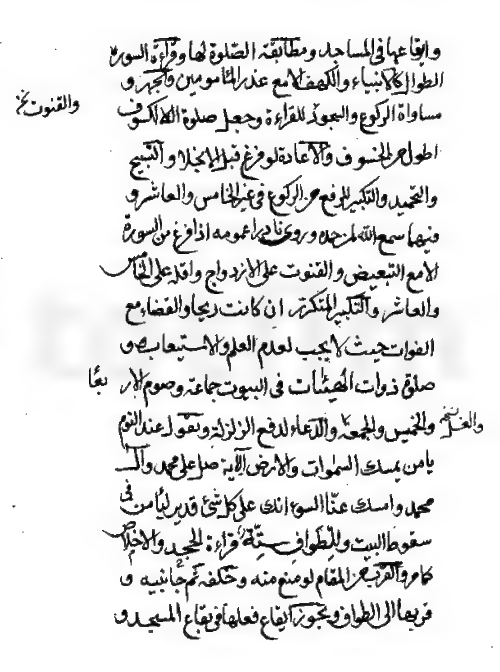 وايقاعها في المساجد ومطابقة الصلوة لها وقراءة السورة
الطوال كالانبياء والكهف الا مع عذر المأمومين والجهر و
مساواة الركوع والسجود للقراءة وجعل صلوة الكسوف
والقنوت
اطول من الخسوف والاعادة لو فرغ قبل الانجلاء والتسبيح
والتحميد والتكبير للرفع من الركوع في غير الخامس والعاشر و
فيهما سمع الله لمن حمده وروى نادرا عمومه اذا فرغ من السورة
الا مع التبعيض والقنوت على الازدواج واقله على الخامس
والعاشر والتكبير المتكرر ان كانت ريحا والقضاء مع
الفوات حيث لا يجب لعدم العلم والاستيعاب و
صلوة ذوات الهيئات في البيوت جماعة وصوم الاربعا
والخميس والجمعة والدعاء لدفع الزلزلة ويقول عند النوم
والغسل
يا من يمسك السموات والارض الآية صل على محمد وآل
محمد وامسك عنا السوء انك على كل شئ قدير ليأمن في
سقوط البيت وللطواف ستة قراءة الجحد والاخلاص
كما مر والقرب من المقام لو منع منه وخلفه ثم جانبيه و
قربها الى الطواف ويجوز ايقاع فعلها في بقاع المسجد و